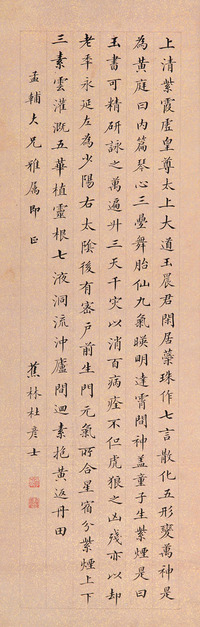 上清紫霞虛皇尊太上大道玉晨君閑居蘂珠作七言散化五形變萬神是
為黃庭曰內篇琴心三疊舞胎仙九氣暎明達霄間神蓋童子生紫煙是曰
玉書可精研詠之萬遍升三天千災以消百病痊不但虎狼之凶殘亦以却
老秊永延左為少陽右太陰後有密戶前生門元氣所合星宿分紫煙上下
三素雲灌溉五華植靈根七液洞流沖廬間迴素抱黃返丹田
孟輔大兄雅屬即正
蕉林杜彥士